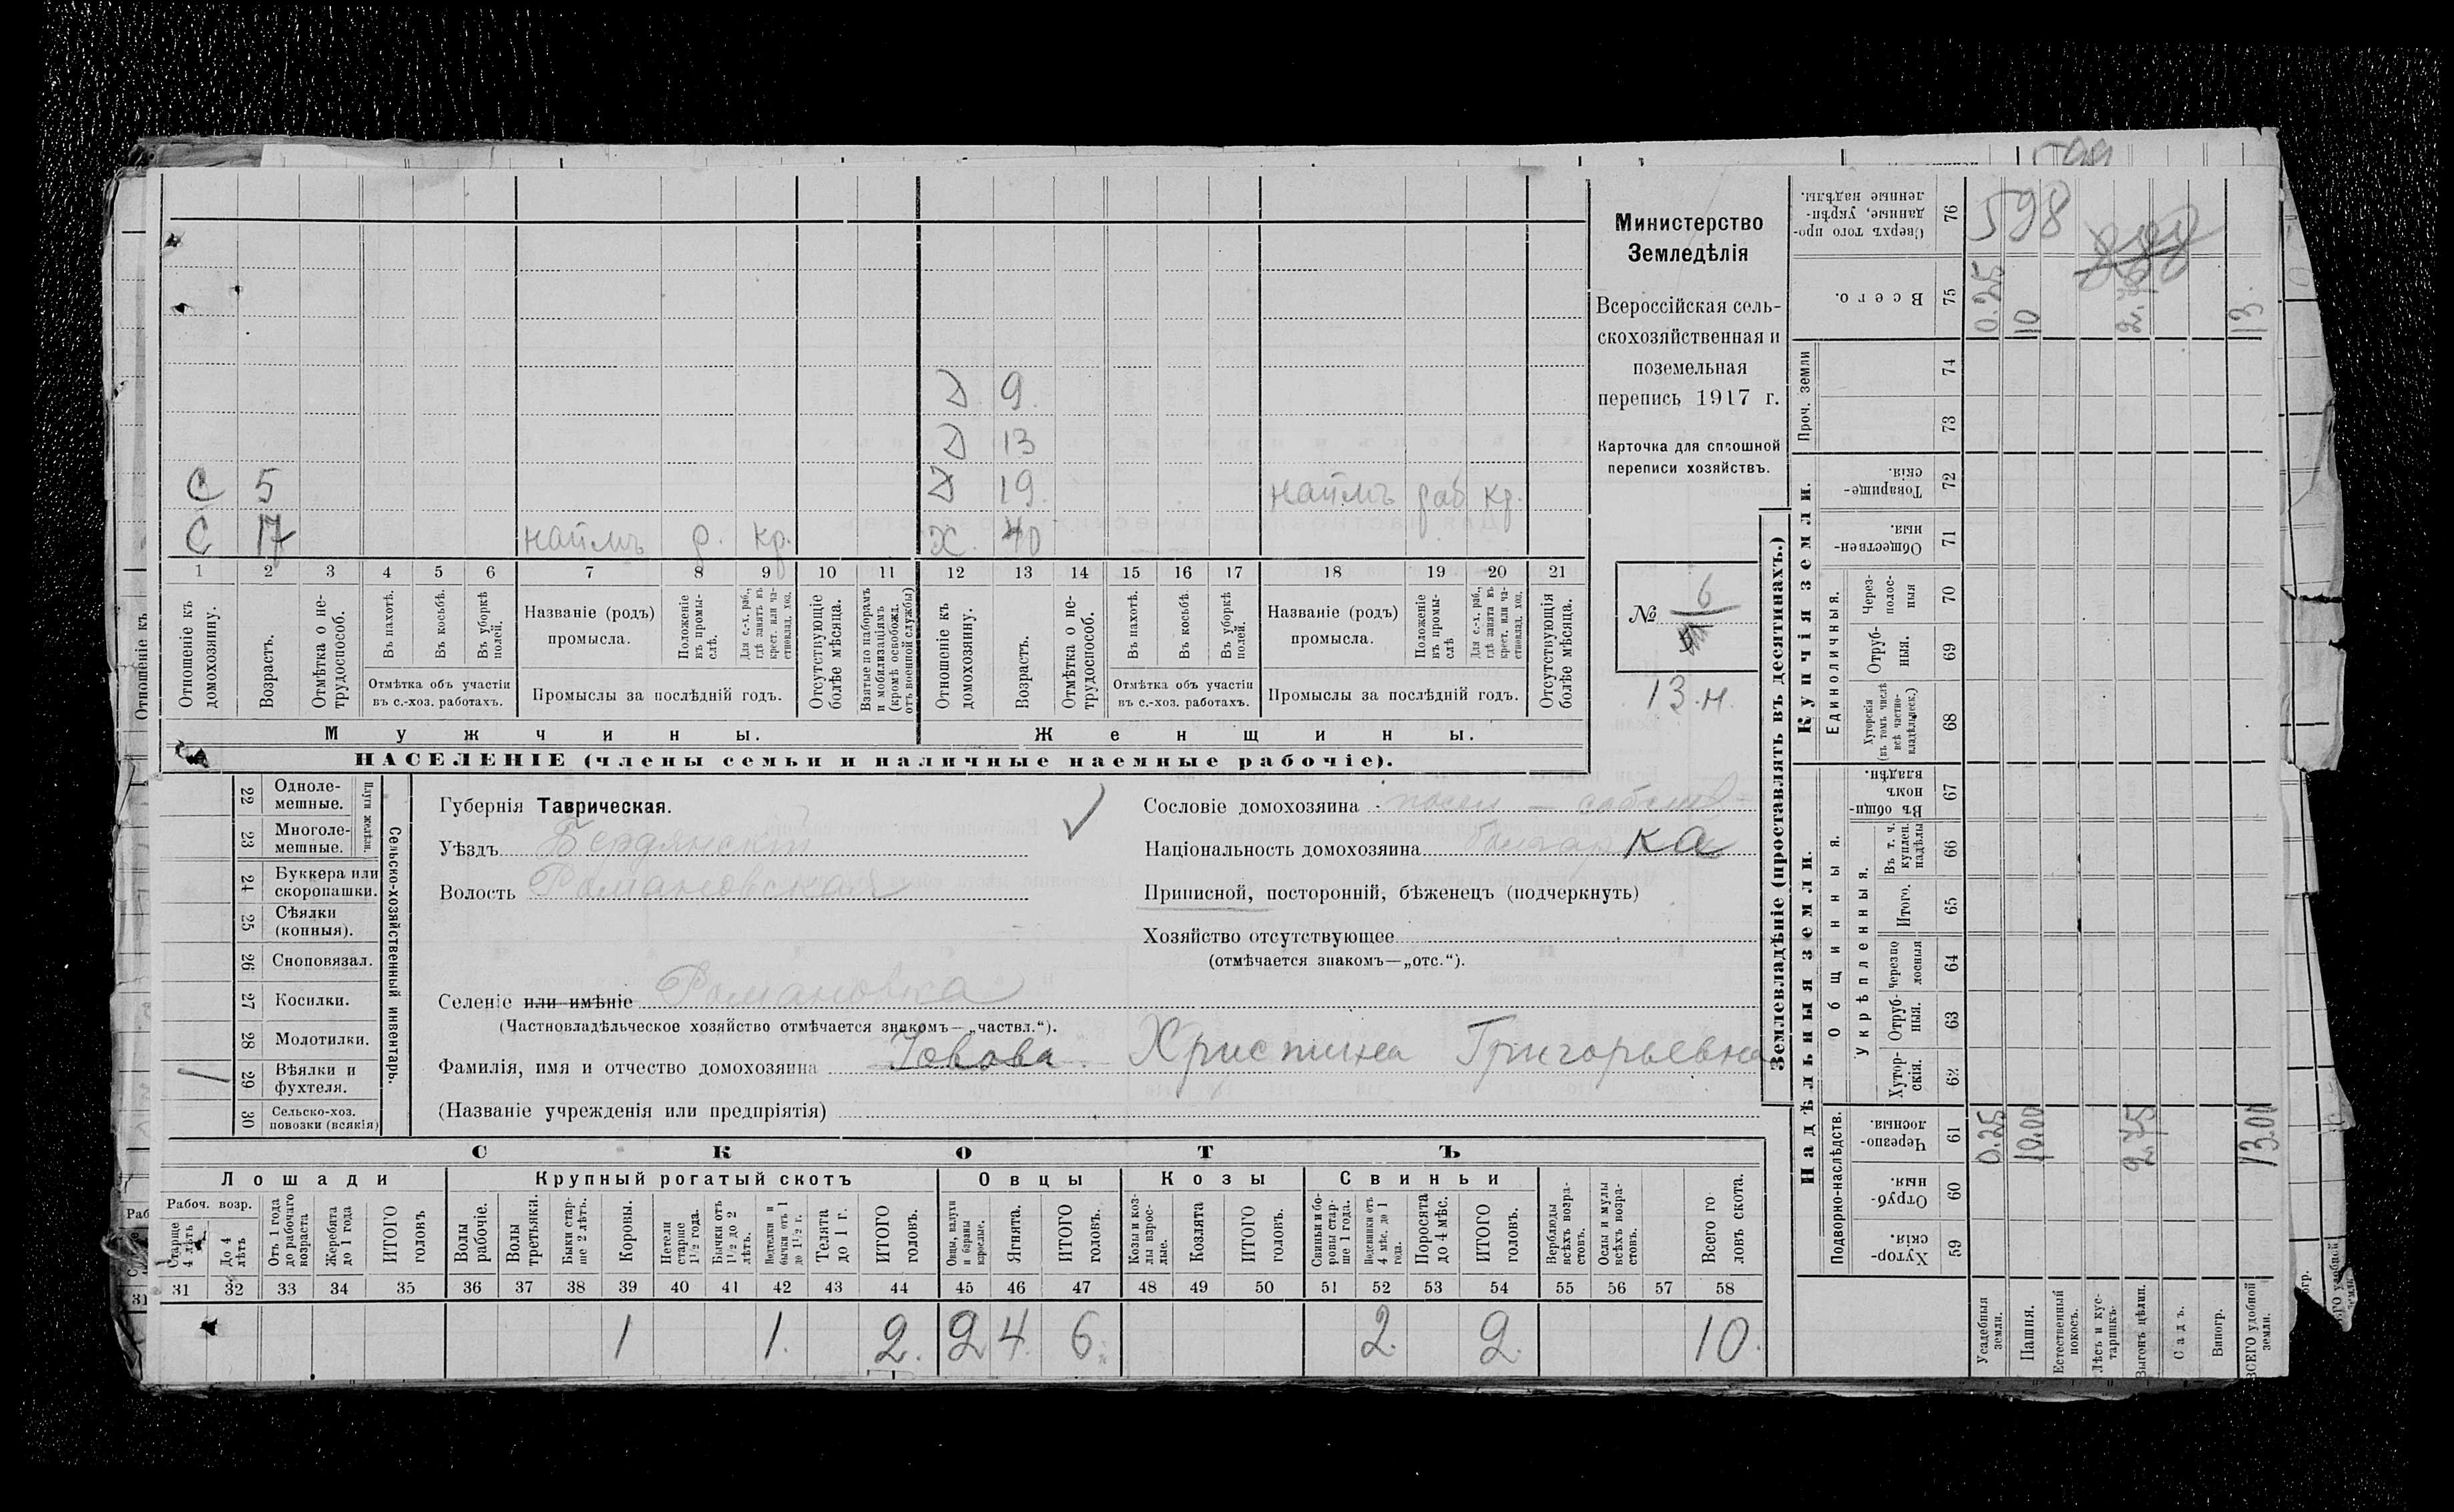 Д 9.
Д 13
С 5 Д 19. наймъ раб кр.
С 17 наймъ р. кр. Х. 40
1 2 3 4 5 6 7 8 9 10 11 12 13 14 15 16 17 18 19 20 21
Отношеніе къ домохозяину.
Возрастъ.
Отмѣтка о не-трудоспособ.
Въ пахотѣ.
Въ косьбѣ.
Въ уборкѣ полей.
Отмѣтка объ участіи
въ с.-хоз. работахъ.
Названіе (родъ)
промысла.
Положеніе въ промы-слѣ.
Для с.-х. раб., гдѣ занятъ въ крест. или ча-стновлад. хоз.
Промыслы за послѣдній годъ.
Отсутствующіе болѣе мѣсяца.
Взятые по наборамъ и мобилизаціямъ (кромѣ освобожд. отъ военной службы)
Отношеніе къ домохозяину.
Возрастъ.
Отмѣтка о не-трудоспособ.
Въ пахотѣ.
Въ косьбѣ.
Въ уборкѣ полей.
Отмѣтка объ участіи
въ с.-хоз. работахъ.
Названіе (родъ)
промысла.
Положеніе въ промы-слѣ
Для с.-х. раб., гдѣ занята въ крест. или ча-стновлад. хоз.
Промыслы за послѣдній годъ.
Отсутствующія болѣе мѣсяца.
Мужчины.
Женщины.
НАСЕЛЕНІЕ (члены семьи и наличные наемные рабочіе).
Министерство
Земледѣлія
Всероссійская сель-
скохозяйственная и
поземельная
перепись 1917 г.
Карточка для сплошной
переписи хозяйствъ.
№ 6
13.н.
22 Одноле-мешные.
23 Многоле-мешные.
Плуги желѣзн.
24 Буккера или скоропашки.
25 Сѣялки (конныя).
26 Сноповязал.
27 Косилки.
28 Молотилки.
29 Вѣялки и фухтеля.
30 Сельско-хоз. повозки (всякія)
Сельско-хозяйственный инвентарь.
Губернія Таврическая.
Уѣздъ Бердянскій
Волость Романовская
Селеніе или имѣніе Романовка
(Частновладѣльческое хозяйство отмѣчается знакомъ—„частвл.“).
Фамилія, имя и отчество домохозяина Човова Христина Григорьевна
(Названіе учрежденія или предпріятія)
Сословіе домохозяина посел — собств
Національность домохозяина болгарка
Приписной, посторонній, бѣженецъ (подчеркнуть)
Хозяйство отсутствующее
(отмѣчается знакомъ—„отс.“).
СКОТЪ
Лошади Крупный рогатый скотъ Овцы Козы Свиньи
Рабоч. возр.
Старше 4 лѣтъ
До 4 лѣтъ
Отъ 1 года до рабочаго возраста
Жеребята до 1 года
ИТОГО головъ
Волы рабочіе.
Волы третьяки.
Быки стар-ше 2 лѣтъ.
Коровы.
Нетели старше 1½ года.
Бычки отъ 1½ до 2 лѣтъ.
Подтелки и бычки отъ 1 до 1½ г.
Телята до 1 г.
ИТОГО головъ.
Овцы, валухи и бараны взрослые.
Ягнята.
ИТОГО головъ.
Козы и коз-лы взрос-лые.
Козлята
ИТОГО головъ.
Свиньи и бо-ровы стар-ше 1 года.
Подсвинки отъ 4 мѣс. до 1 года.
Поросята до 4 мѣс.
ИТОГО головъ.
Верблюды всѣхъ возра-стовъ.
Ослы и мулы всѣхъ возра-стовъ.
Всего го ловъ скота.
31 32 33 34 35 36 37 38 39 40 41 42 43 44 45 46 47 48 49 50 51 52 53 54 55 56 57 58
1 1. 2. 2 4. 6. 2. 2. 10.
Землевладѣніе (проставлять въ десятинахъ.)
Купчія земли.
Надѣльныя земли.
Сверхъ того про-данные, укрѣп-ленные надѣлы. 76 598
Всего. 75 0.25 10 2.75 13.
Проч. земли 74
73
Товарище-скія. 72
Обществен-ныя. 71
Единоличныя.
Через-полос-ныя 70
Отруб-ныя. 69
Хуторскія (въ томъ числѣ всѣ частно-владѣльческ.) 68
Общинныя.
Въ общи-номъ владѣн. 67
Укрѣпленныя.
Въ т. ч. куплен. надѣлы 66
Итого. 65
черезпо лосныя 64
Отруб-ныя. 63
Хутор-скія. 62
Подворно-наслѣдств.
Черезпо-лосныя. 61 0.25 10.00 2.75 13.00
Отруб-ныя. 60
Хутор-скія. 59
Усадебныя земли.
Пашня.
Естественный покосъ.
Лѣсъ и кус-тарникъ.
Выгонъ цѣлин.
Садъ.
Виногр.
ВСЕГО удобной земли.